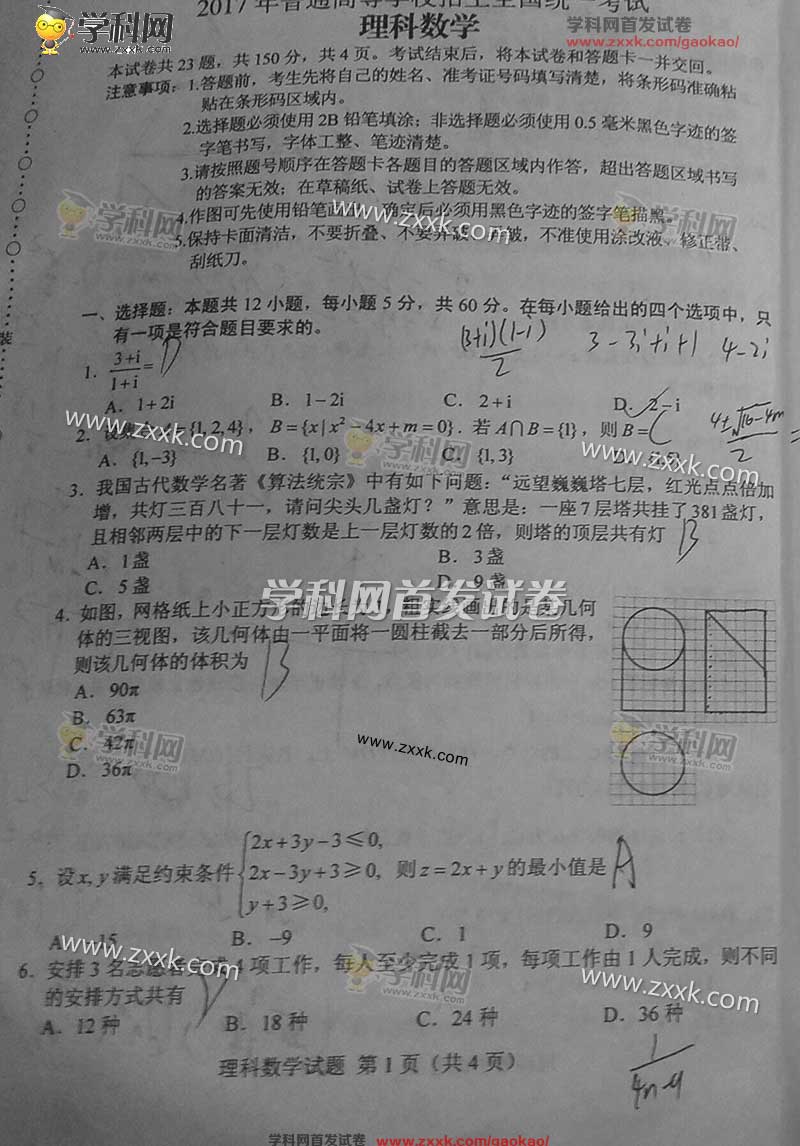 学科网首发试卷
www.zxxk.com/gaokao/
2017年普通高等学校招生全国统一考试
学科网
www.zxxk.com
理科数学
本试卷共23题，共150分，共4页。考试结束后，将本试卷和答题卡一并交回。
注意事项：1.答题前，考生先将自己的姓名、准考证号码填写清楚，将条形码准确粘
贴在条形码区域内。
2.选择题必须使用2B铅笔填涂；非选择题必须使用0.5毫米黑色字迹的签
字笔书写，字体工整、笔迹清楚。
3.请按照题号顺序在答题卡各题目的答题区域内作答，超出答题区域书写
的答案无效；在草稿纸、试卷上答题无效。
4.作图可先使用铅笔画出，确定后必须用黑色字迹的签字笔描黑。
5.保持卡面清洁，不要折叠、不要弄破、弄皱，不准使用涂改液、修正带、
刮纸刀。
学科网
学科网
www.zxxk.com
装
一、选择题：本题共12小题，每小题5分，共60分。在每小题给出的四个选项中，只
有一项是符合题目要求的。
(3+i)(1-i)/2 3-3i+i+1 4-2i
1. (3+i)/(1+i)= D
A. 1+2i B. 1-2i C. 2+i D. 2-i
2. 设集合A={1,2,4}，B={x|x²-4x+m=0}.若A∩B={1}，则B= C
(4±√(16-4m))/2 =
A. {1,-3} B. {1,0} C. {1,3} D. {1,5}
www.zxxk.com
www.zxxk.com
3. 我国古代数学名著《算法统宗》中有如下问题：“远望巍巍塔七层，红光点点倍加
增，共灯三百八十一，请问尖头几盏灯？”意思是：一座7层塔共挂了381盏灯，
且相邻两层中的下一层灯数是上一层灯数的2倍，则塔的顶层共有灯 B
A. 1盏 B. 3盏
C. 5盏 D. 9盏
学科网首发试卷
4. 如图，网格纸上小正方形的边长为1，粗实线画出的是某几何
体的三视图，该几何体由一平面将一圆柱截去一部分后所得，
则该几何体的体积为 B
A. 90π
B. 63π
C. 42π
D. 36π
学科网
www.zxxk.com
学科网
5. 设x,y满足约束条件 2x+3y-3≤0,
2x-3y+3≥0, 则z=2x+y的最小值是 A
y+3≥0,
A. -15 B. -9 C. 1 D. 9
www.zxxk.com
学科网
www.zxxk.com
6. 安排3名志愿者完成4项工作，每人至少完成1项，每项工作由1人完成，则不同
的安排方式共有 D
A. 12种 B. 18种 C. 24种 D. 36种
理科数学试题 第1页（共4页）
学科网首发试卷
www.zxxk.com/gaokao/